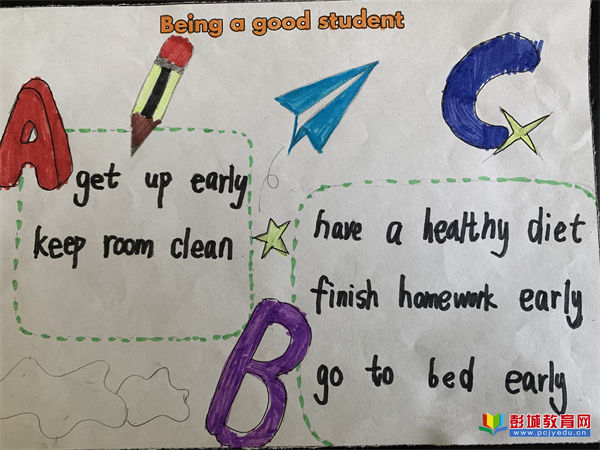 Being a good student
A
C
get up early
keep room clean
have a healthy diet
finish homework early
go to bed early
B
彭城教育网
www.pcjyedu.cn